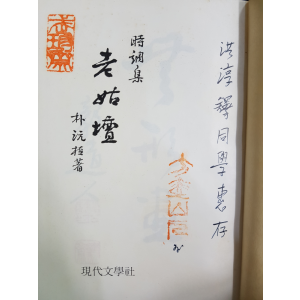 洪淳鐸同學惠存
時調集
老姑壇
朴沆植著
現代文學社